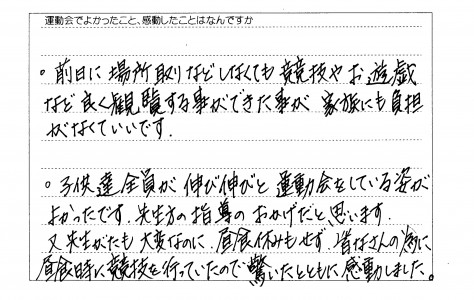 運動会でよかったこと、感動したことはなんですか
。前日に場所取りなどしなくても競技やお遊戯
など良く観覧する事ができた事が家族にも負担
がなくていいです.
。子供達全員が伸び伸びと運動会をしている姿が
よかったです.先生方の指導のおかげだと思います.
又先生がたも大変なのに.昼食休みもせず.皆なさんの為に
昼食時に競技を行っていたので驚いたとともに感動しました。